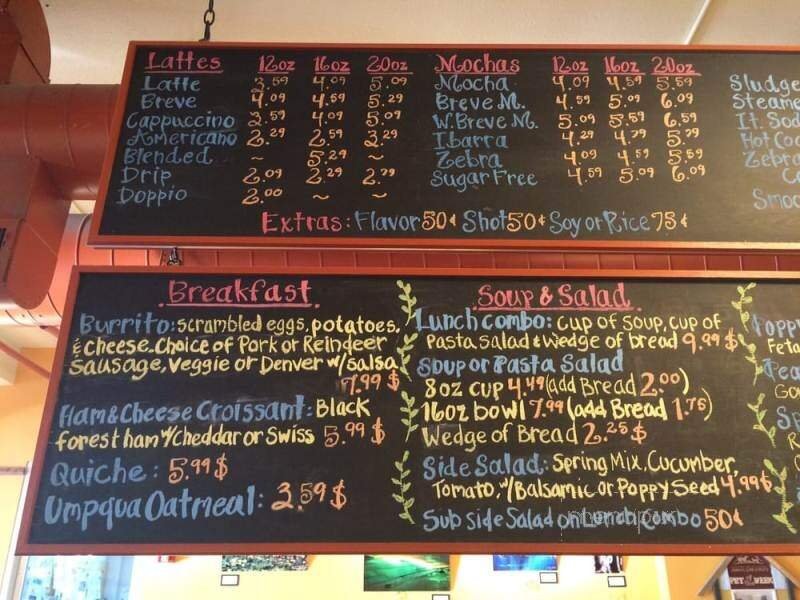 Lattes 12oz 16oz 20oz
Latte 3.59 4.09 5.09
Breve 4.09 4.59 5.29
Cappuccino 3.59 4.09 5.09
Americano 2.29 2.59 3.29
Blended ~ 5.29 ~
Drip 2.09 2.29 2.79
Doppio 2.00 ~ ~
Mochas 12oz 16oz 20oz
Mocha 4.09 4.59 5.59
Breve M. 4.59 5.09 6.09
W. Breve M. 5.09 5.59 6.59
Ibarra 4.29 4.79 5.79
Zebra 4.09 4.59 5.59
Sugar Free 4.59 5.09 6.09
Sludge
Steame
It. Sod
Hot Coc
Zebra
Co
Smoo
Extras: Flavor 50¢ Shot 50¢ Soy or Rice 75¢
Breakfast
Burrito: scrambled eggs, potatoes,
& cheese. Choice of Pork or Reindeer
sausage, veggie or Denver w/salsa
7.99 $
Ham & Cheese Croissant: Black
forest ham w/cheddar or Swiss 5.99 $
Quiche: 5.99 $
Umpqua Oatmeal: 3.59 $
Soup & Salad
Lunch combo: cup of soup, cup of
pasta salad & wedge of bread 9.99 $
Soup or Pasta Salad
8oz cup 4.49 (add Bread 2.00)
16oz bowl 7.99 (add Bread 1.75)
Wedge of Bread 2.25 $
Side Salad: Spring Mix, Cucumber,
Tomato, w/Balsamic or Poppy Seed 4.99 $
Sub side Salad on Lunch Combo 50¢
Popp
Feta
Go
Sp